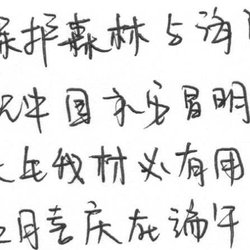 保护森林与海
祝中国永远昌明
天生我材必有用
五月喜庆在端午